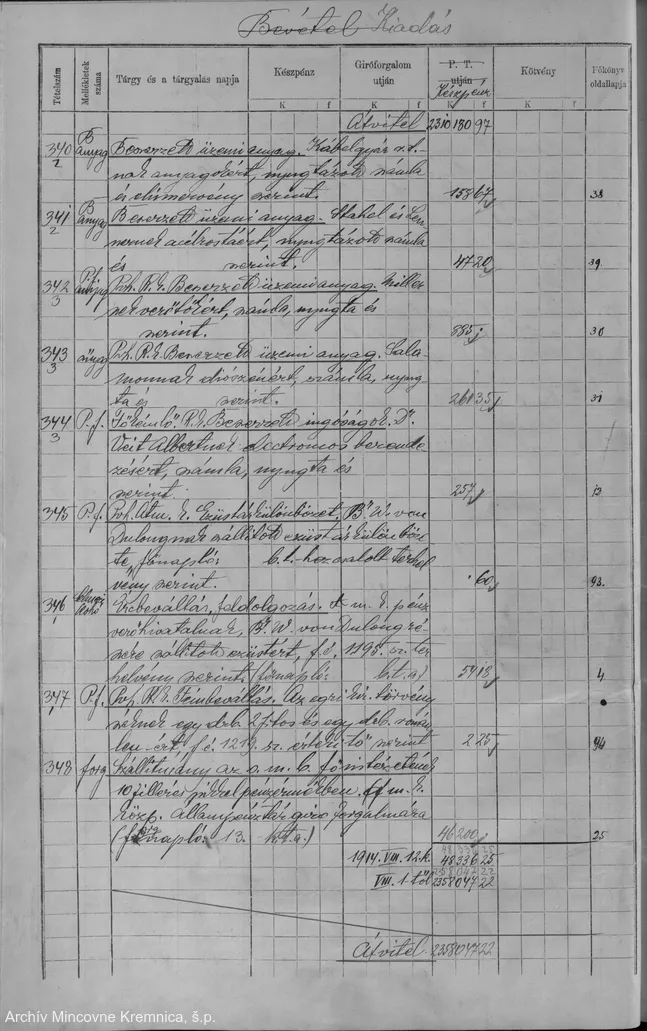 Bevétel Kiadás
Tételszám
Mellékletek száma
Tárgy és a tárgyalás napja
Készpénz
K f
Giróforgalom útján
K f
P. T. útján
Készpénz
K f
Kötvény
K f
Főkönyv oldallapja
Átvitel 2310180 97
340 B anyag Beszerzett üzemi anyag. Kábelgyár r.t.-
2 nak anyagokért, nyugtázott számla
és elismervény szerint. 158 67 38
341 B anyag Beszerzett üzemi anyag. Stahel és Len-
2 nernek acélrostáért, nyugtázott számla
és szerint. 47 20 39
342 P.f. Beszerzett üzemi anyag. Miller
3 számla, nyugta és
szerint. 885 30
343 anyag Beszerzett üzemi anyag. Sala-
3 monnak diószénért, számla, nyug-
ta és szerint. 261 35 31
344 P.f. Beszerzett ingóságok. Dr.
3 Veit Albertnek electromos berende-
zésért, számla, nyugta és
szerint. 257 12
345 P.f. Ezüstárkülönbözet, Br W. von
Dulongnak szállított ezüst árkülönböze-
te, főnapló: k.t.-hoz csatolt térhel-
vény szerint. 60 93
346 Ércbeváltás, feldolgozás. A m. k. pénz-
verőhivatalnak, Br W. von Dulong ré-
szére szállított ezüstért, f.é. 1195. sz. tér-
helvény szerint. (főnapló: k.t.a) 5418 4
347 P.f. Fémbeváltás. Az egri kir. törvény-
széknek egy drb. 2 fitos és egy drb.
f.é. 1219. sz. értesítő szerint 2 25 94
348 forg Szállítmány az o. m. b. főintézetnek
10 filléres nikkel pénzérmékben. A m. k.
közp. Állampénztár giro forgalmára
(főnapló: 13. k.t.a.) 46200 25
1914. VIII. 12.k. 48336 25
VIII. 1-től 2358047 22
Átvitel. 2358047 22
Archív Mincovne Kremnica, š.p.